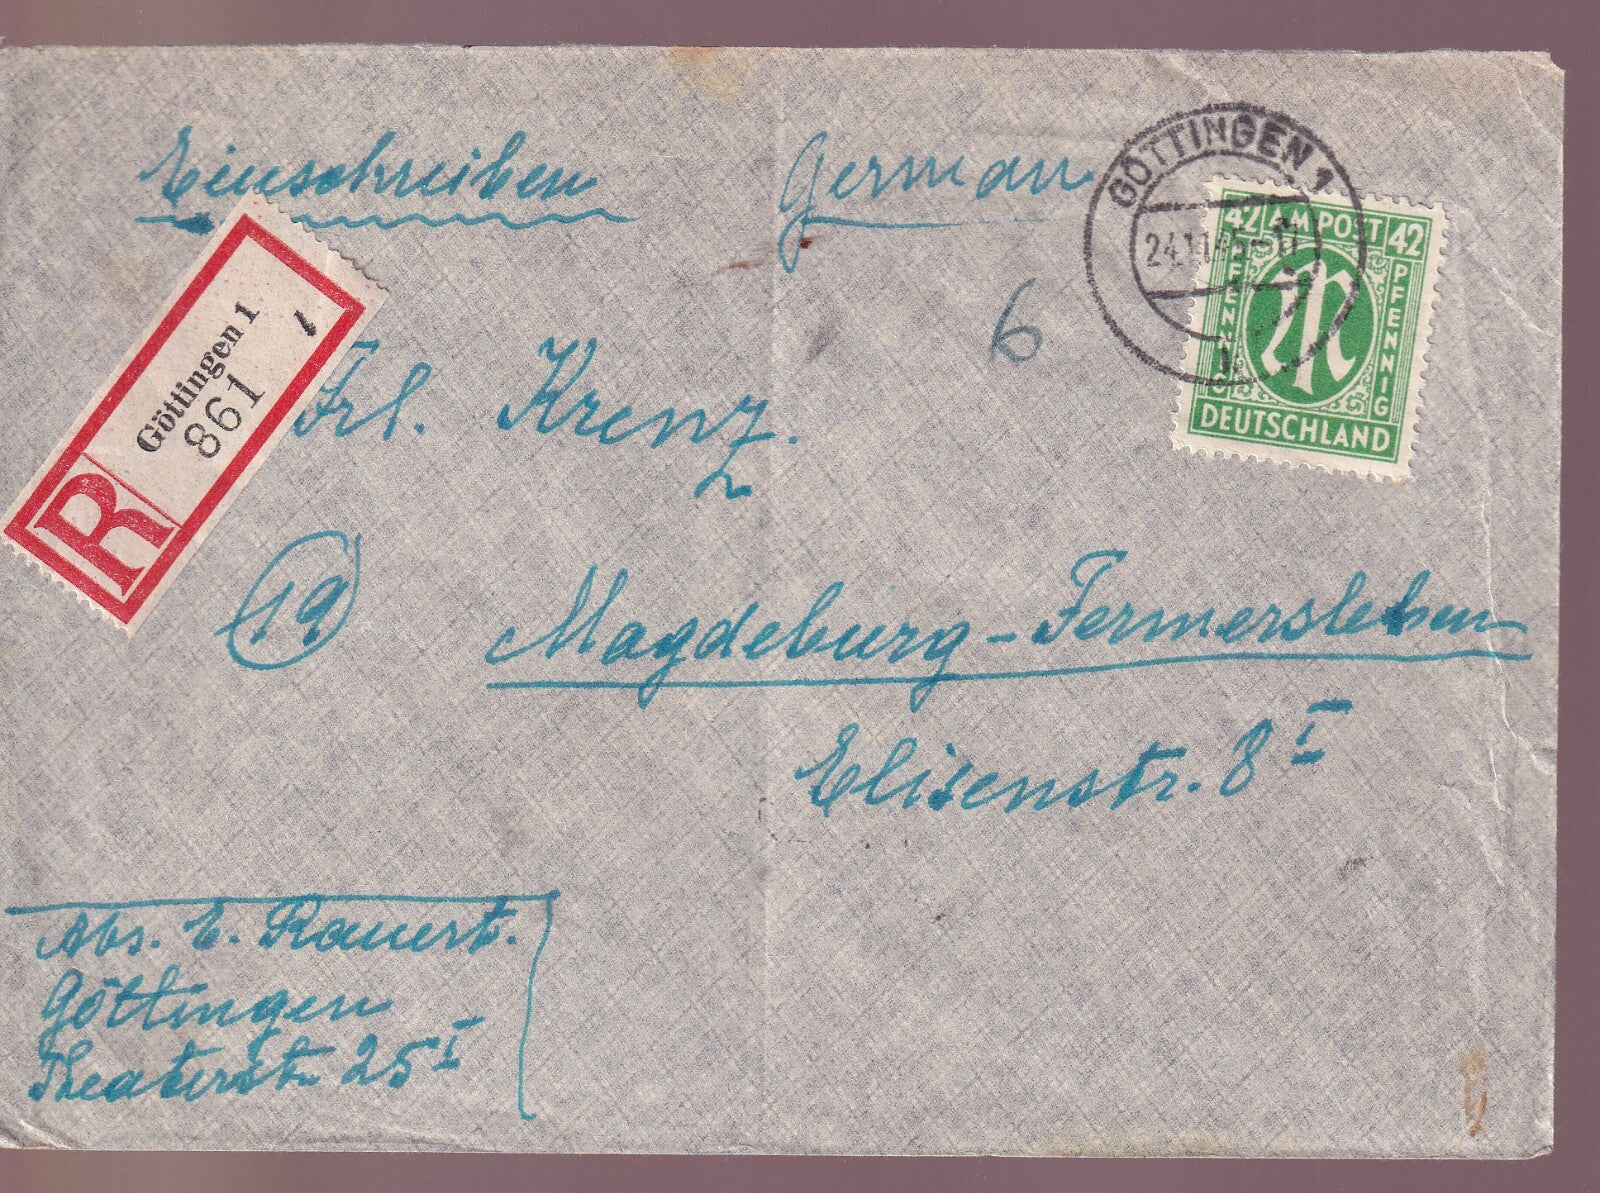 Einschreiben German
GÖTTINGEN 1
24.11.45-11
42 AM POST 42
PFENNIG PFENNIG
DEUTSCHLAND
Göttingen 1
861
R
6
Frl. Krenz.
19 Magdeburg-Fermersleben
Elisenstr. 8 I
Abs. E. Rauert.
Göttingen
Theaterstr. 25 I